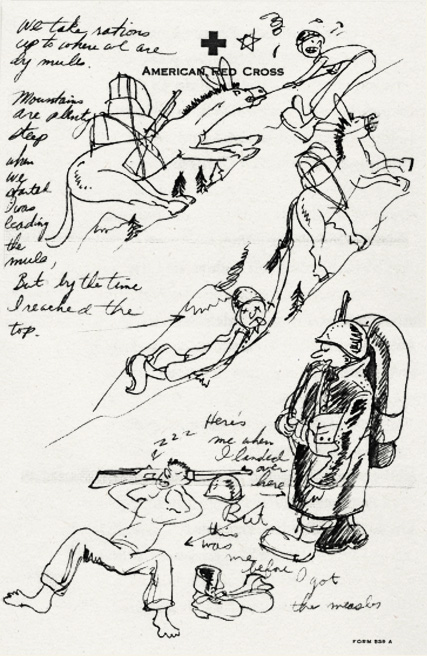 We take rations
up to where we are
by mule.
AMERICAN RED CROSS
Mountains
are plenty
steep
when
we
started
I was
leading
the
mule,
But by the time
I reached the
top.
Here's
me when
I landed
over
here
z z z
But
this
was
me before I got
the measles
FORM A